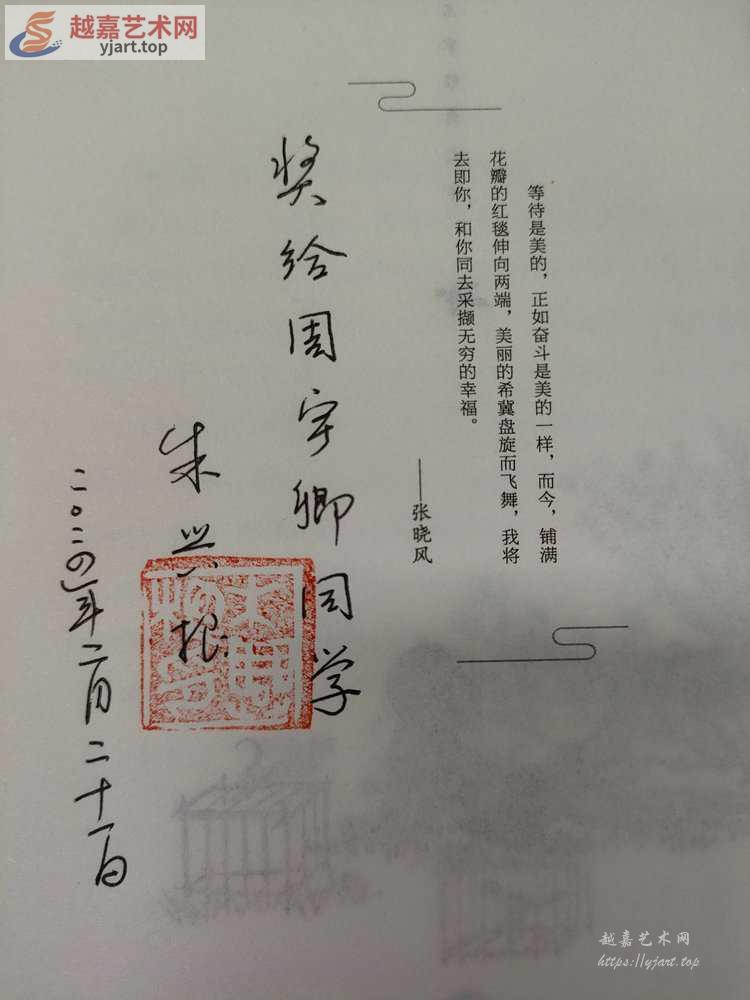 越嘉艺术网
yjart.top
等待是美的，正如奋斗是美的一样，而今，铺满
花瓣的红毯伸向两端，美丽的希冀盘旋而飞舞，我将
去即你，和你同去采撷无穷的幸福。
——张晓风
奖给周宇卿同学
朱兴根
二〇二四年二月二十一日
越嘉艺术网
https://yjart.top